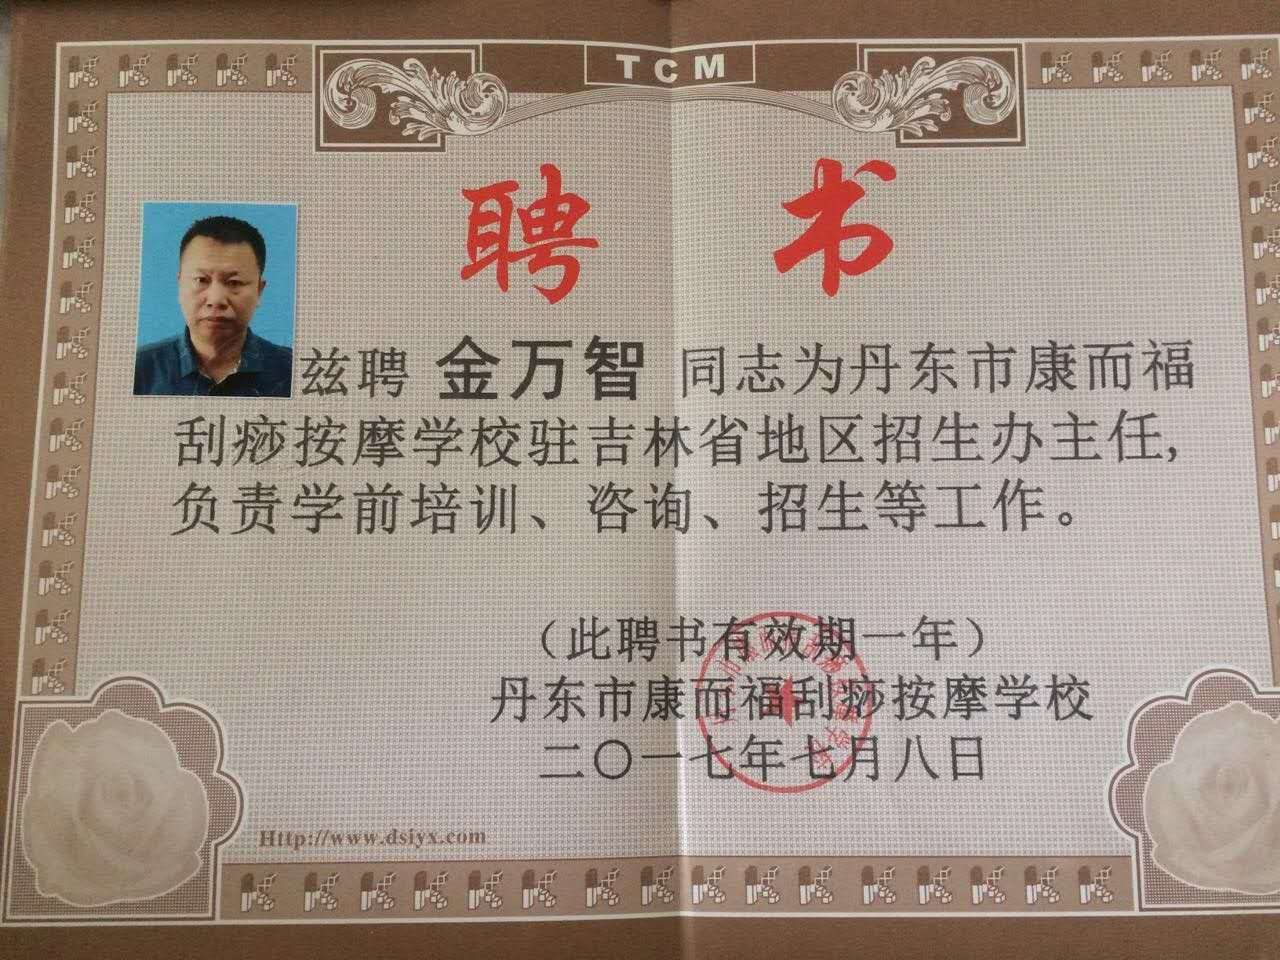 TCM
聘书
兹聘 金万智 同志为丹东市康而福
刮痧按摩学校驻吉林省地区招生办主任,
负责学前培训、咨询、招生等工作。
（此聘书有效期一年）
丹东市康而福刮痧按摩学校
二〇一七年七月八日
Http://www.dsiyx.com